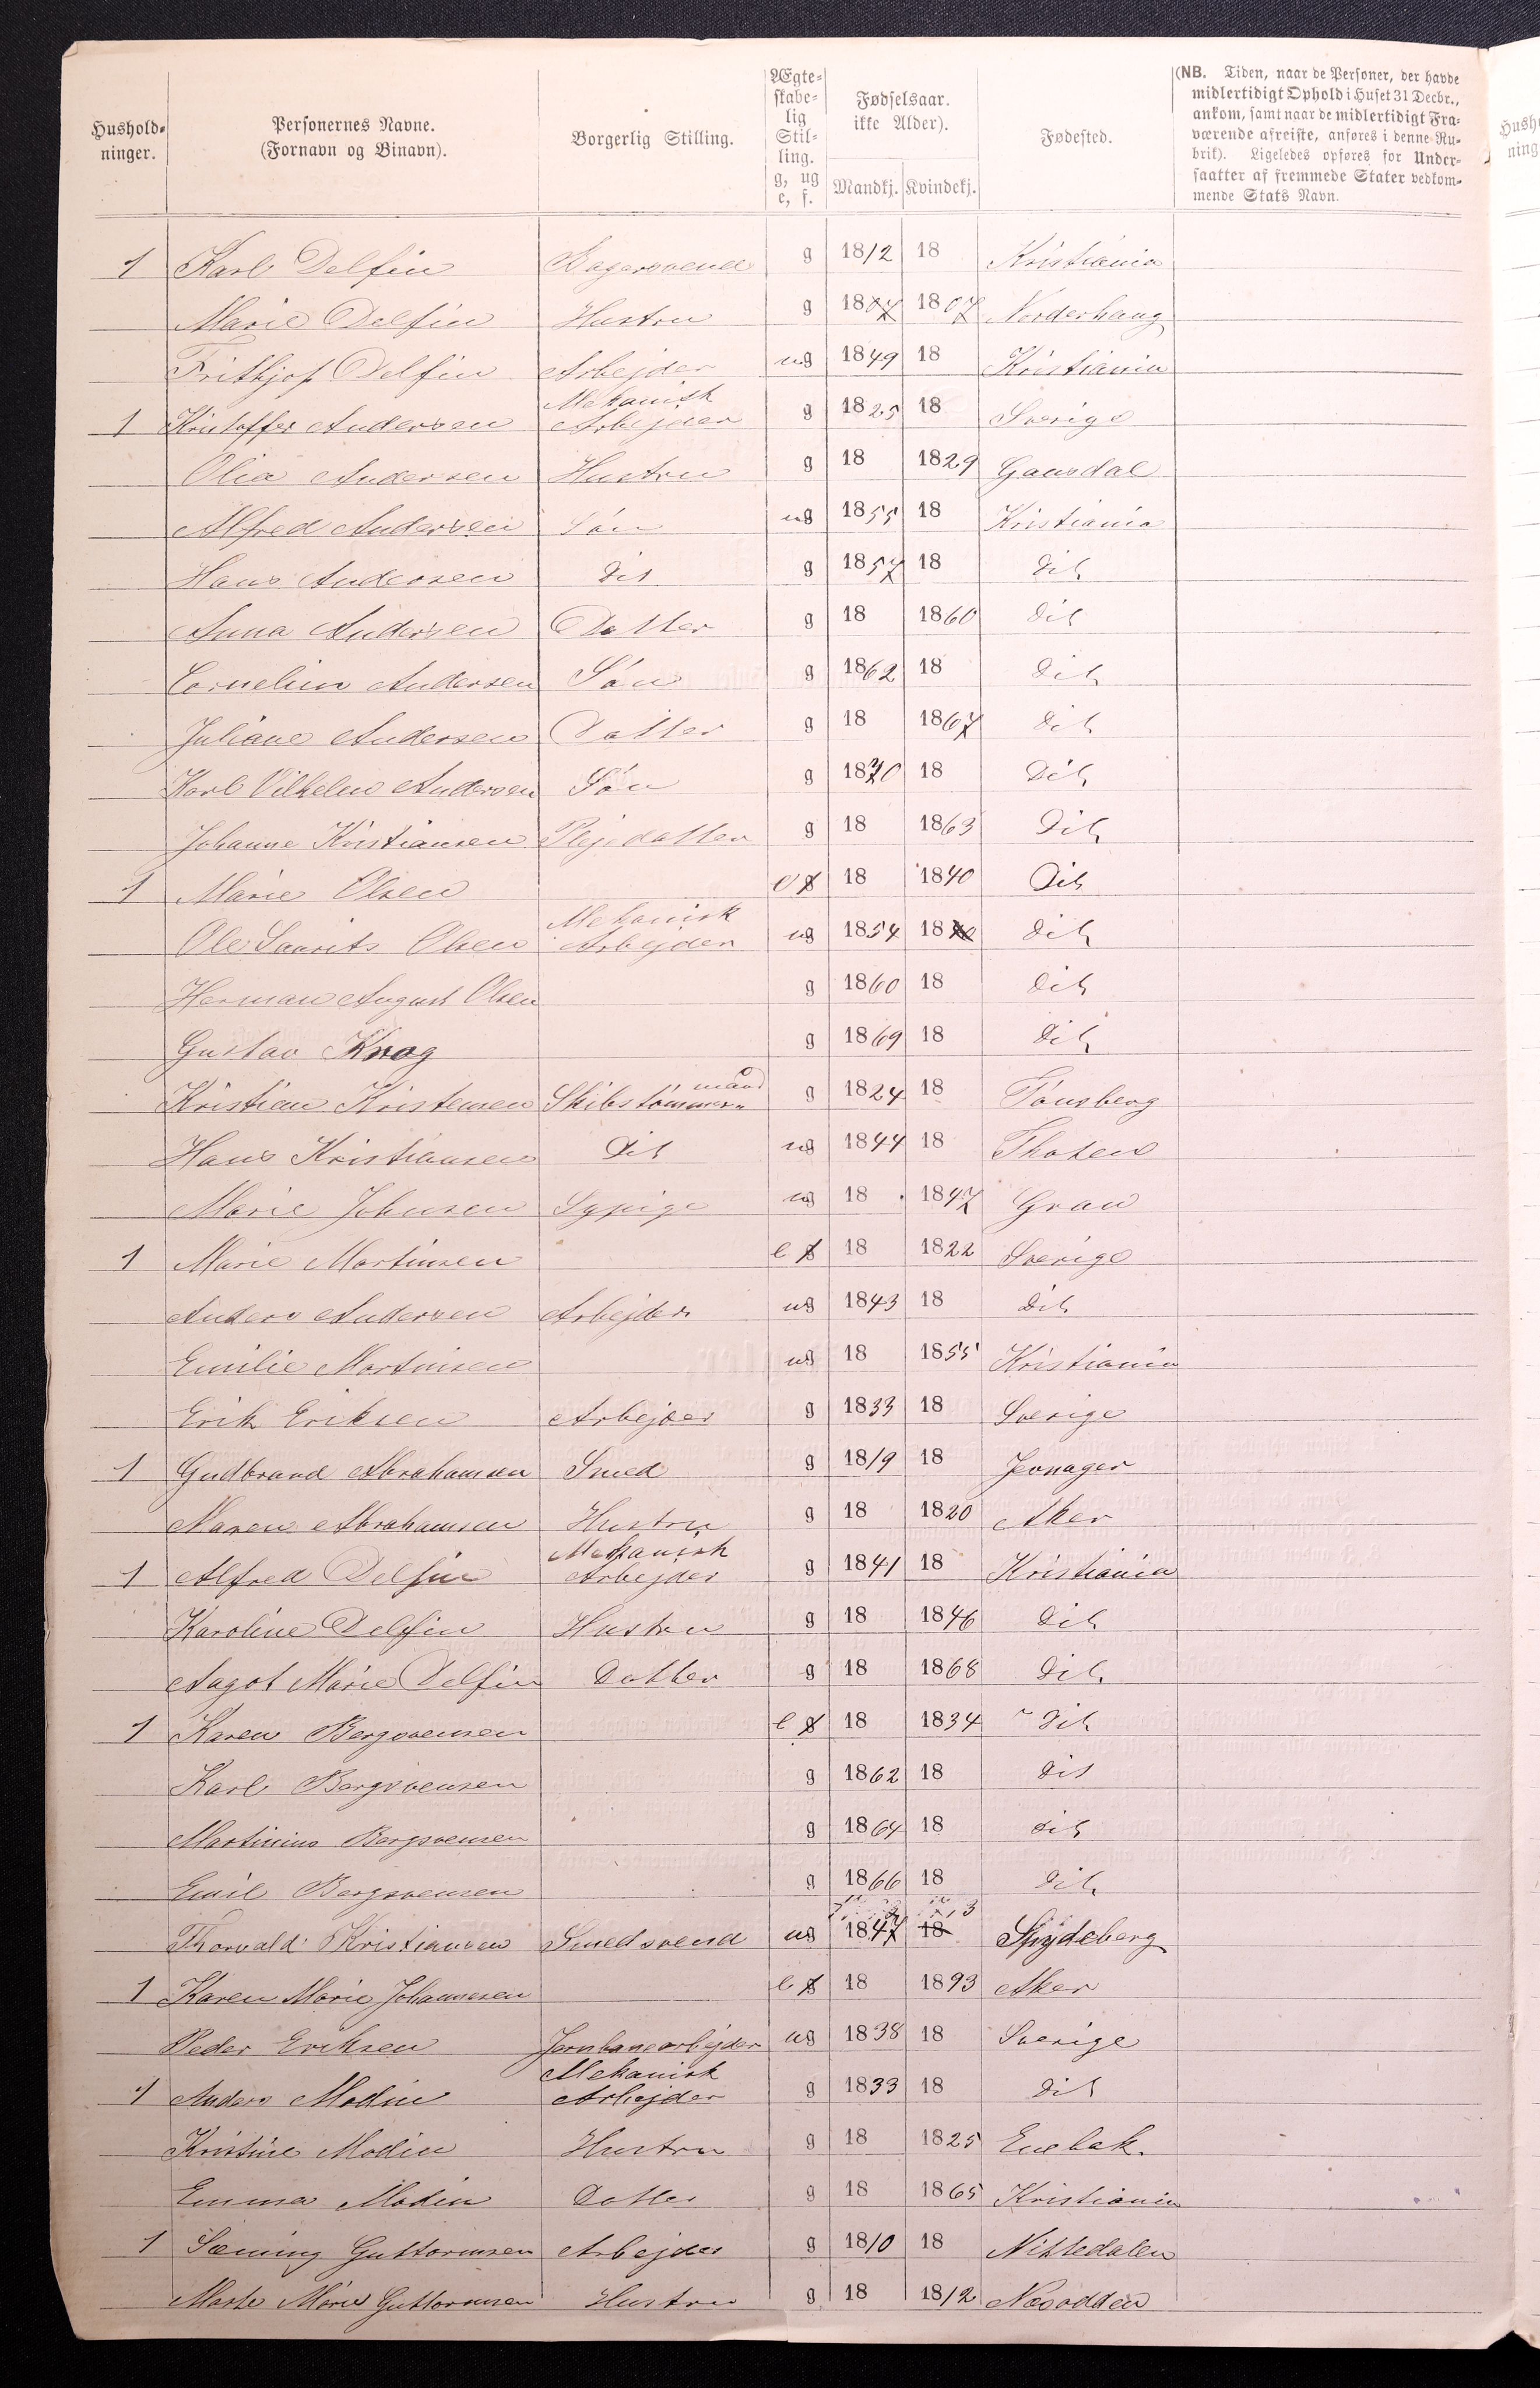 Hushold-
ninger.
Personernes Navne.
(Fornavn og Binavn).
Borgerlig Stilling.
Ægte-
skabe-
lig
Stil-
ling.
g, ug
e, f.
Fødselsaar.
ikke Alder).
Mandkj. Kvindekj.
Fødested.
(NB. Tiden, naar de Personer, der havde
midlertidigt Ophold i Huset 31 Decbr.,
ankom, samt naar de midlertidigt Fra-
værende afreiste, anføres i denne Ru-
brik). Ligeledes opføres for Under-
saatter af fremmede Stater vedkom-
mende Stats Navn.
1 Karl Delfin Bagersvend g 1812 18 Kristiania
Marie Delfin Hustru g 1807 1807 Norderhaug
Frithjof Delfin Arbejder ug 1849 18 Kristiania
1 Kristoffer Andersen Mekanisk Arbejder g 1825 18 Sverige
Olia Andersen Hustru g 18 1829 Gausdal
Alfred Andersen Søn ug 1855 18 Kristiania
Hans Andersen Dit g 1857 18 Dit
Anna Andersen Datter g 18 1860 Dit
Cornelius Andersen Søn g 1862 18 Dit
Juliane Andersen Datter g 18 1867 Dit
Karl Vilhelm Andersen Søn g 1870 18 Dit
Johanne Kristiansen Plejedatter g 18 1863 Dit
1 Marie Olsen e g 18 1840 Dit
Ole Laurits Olsen Mekanisk Arbejder ug 1854 1840 Dit
Herman August Olsen g 1860 18 Dit
Gustav Krog g 1869 18 Dit
Kristian Kristensen Skibstømmermand g 1824 18 Tønsberg
Hans Kristiansen Dit ug 1844 18 Thoten
Marie Johnsen Sypige ug 18 1847 Gran
1 Marie Martinsen e g 18 1822 Sverige
Anders Andersen Arbejder ug 1843 18 Dit
Emilie Martinsen ug 18 1855 Kristiania
Erik Eriksen Arbejder g 1833 18 Sverige
1 Gudbrand Abrahamsen Smed g 1819 18 Jevnager
Maren Abrahamsen Hustru g 18 1820 Aker
1 Alfred Delfin Mekanisk Arbejder g 1841 18 Kristiania
Karoline Delfin Hustru g 18 1846 Dit
Aagot Marie Delfin Datter g 18 1868 Dit
1 Karen Bergsvensen e g 18 1834 Dit
Karl Bergsvensen g 1862 18 Dit
Martinius Bergsvensen g 1864 18 Dit
Emil Bergsvensen g 1866 18 Dit
Thorvald Kristiansen Smedsvend ug 1847 18 Spydeberg
1 Karen Marie Johannesen e g 18 1893 Aker
Peder Eriksen Jernbanearbejder ug 1838 18 Sverige
1 Anders Modin Mekanisk Arbejder g 1833 18 Dit
Kristine Modin Hustru g 18 1825 Enebak.
Emma Modin Datter g 18 1865 Kristiania
1 Sæming Guttormsen Arbejder g 1810 18 Nittedalen
Marte Marie Guttormsen Hustru g 18 1812 Næsodden